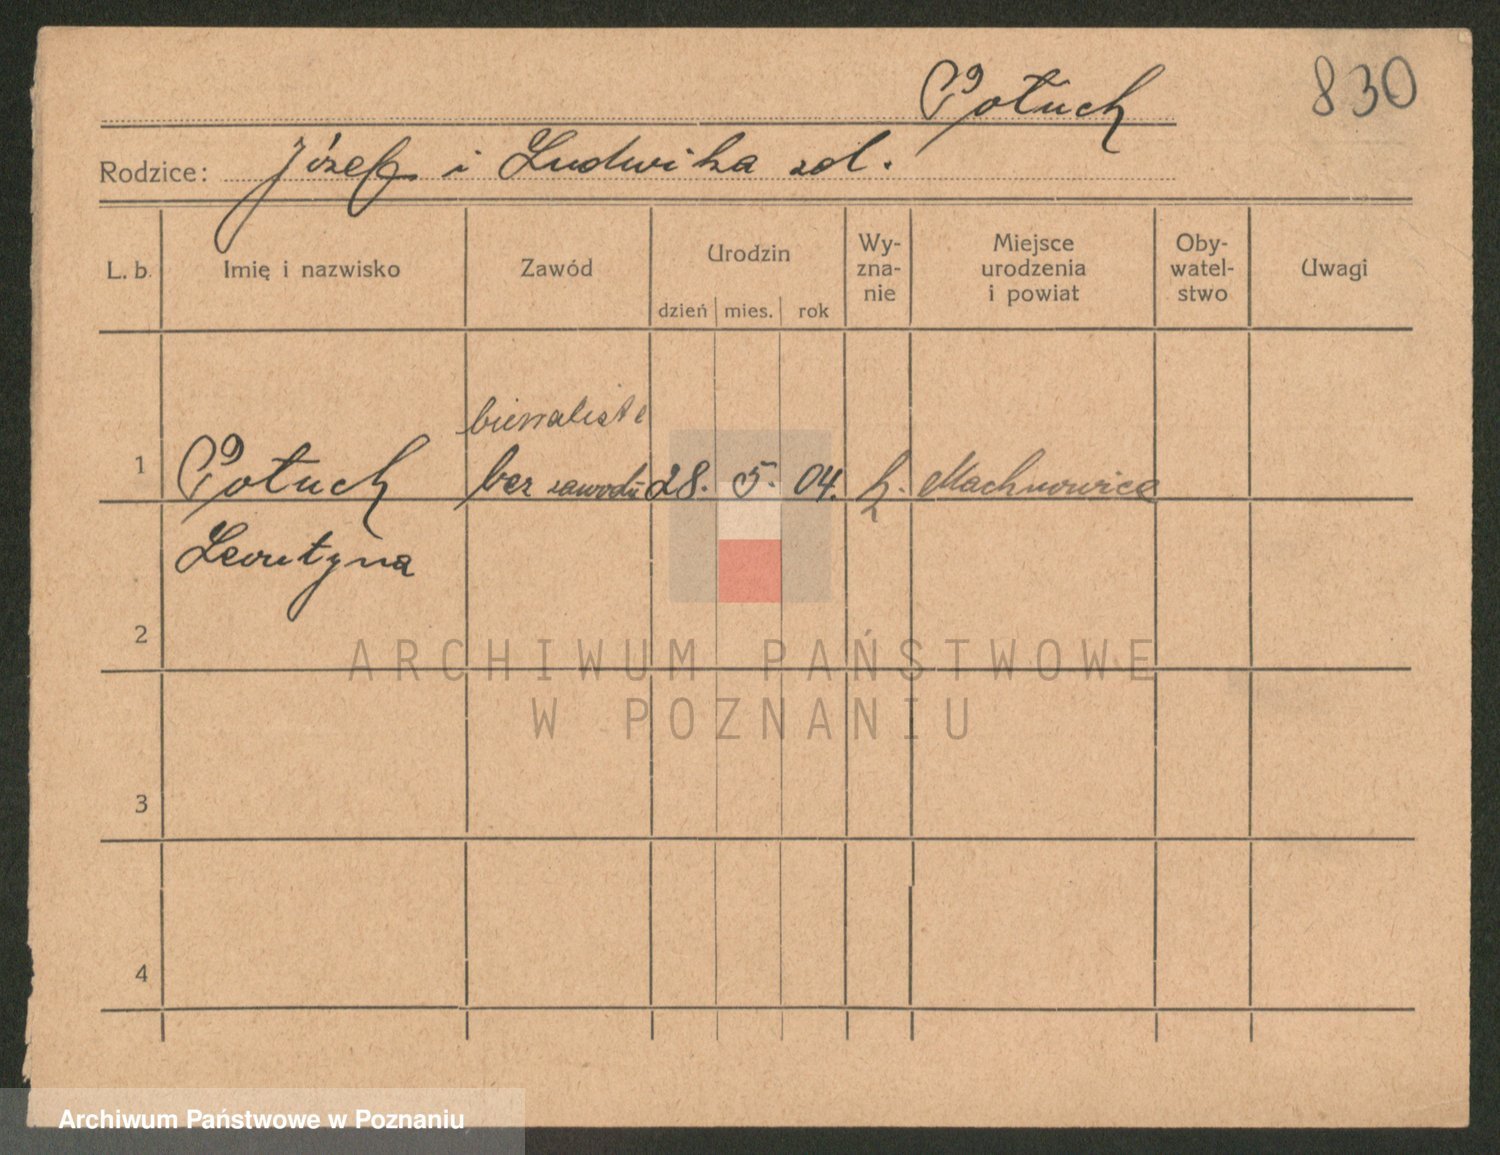 Połuch
830
Rodzice: Józef i Ludwika zd.
L. b.
Imię i nazwisko
Zawód
Urodzin
dzień
mies.
rok
Wy-
zna-
nie
Miejsce
urodzenia
i powiat
Oby-
watel-
stwo
Uwagi
1
Połuch
Leontyna
bez zawodu
28.
5.
04.
Machnowice
2
3
4
ARCHIWUM PAŃSTWOWE
W POZNANIU
Archiwum Państwowe w Poznaniu